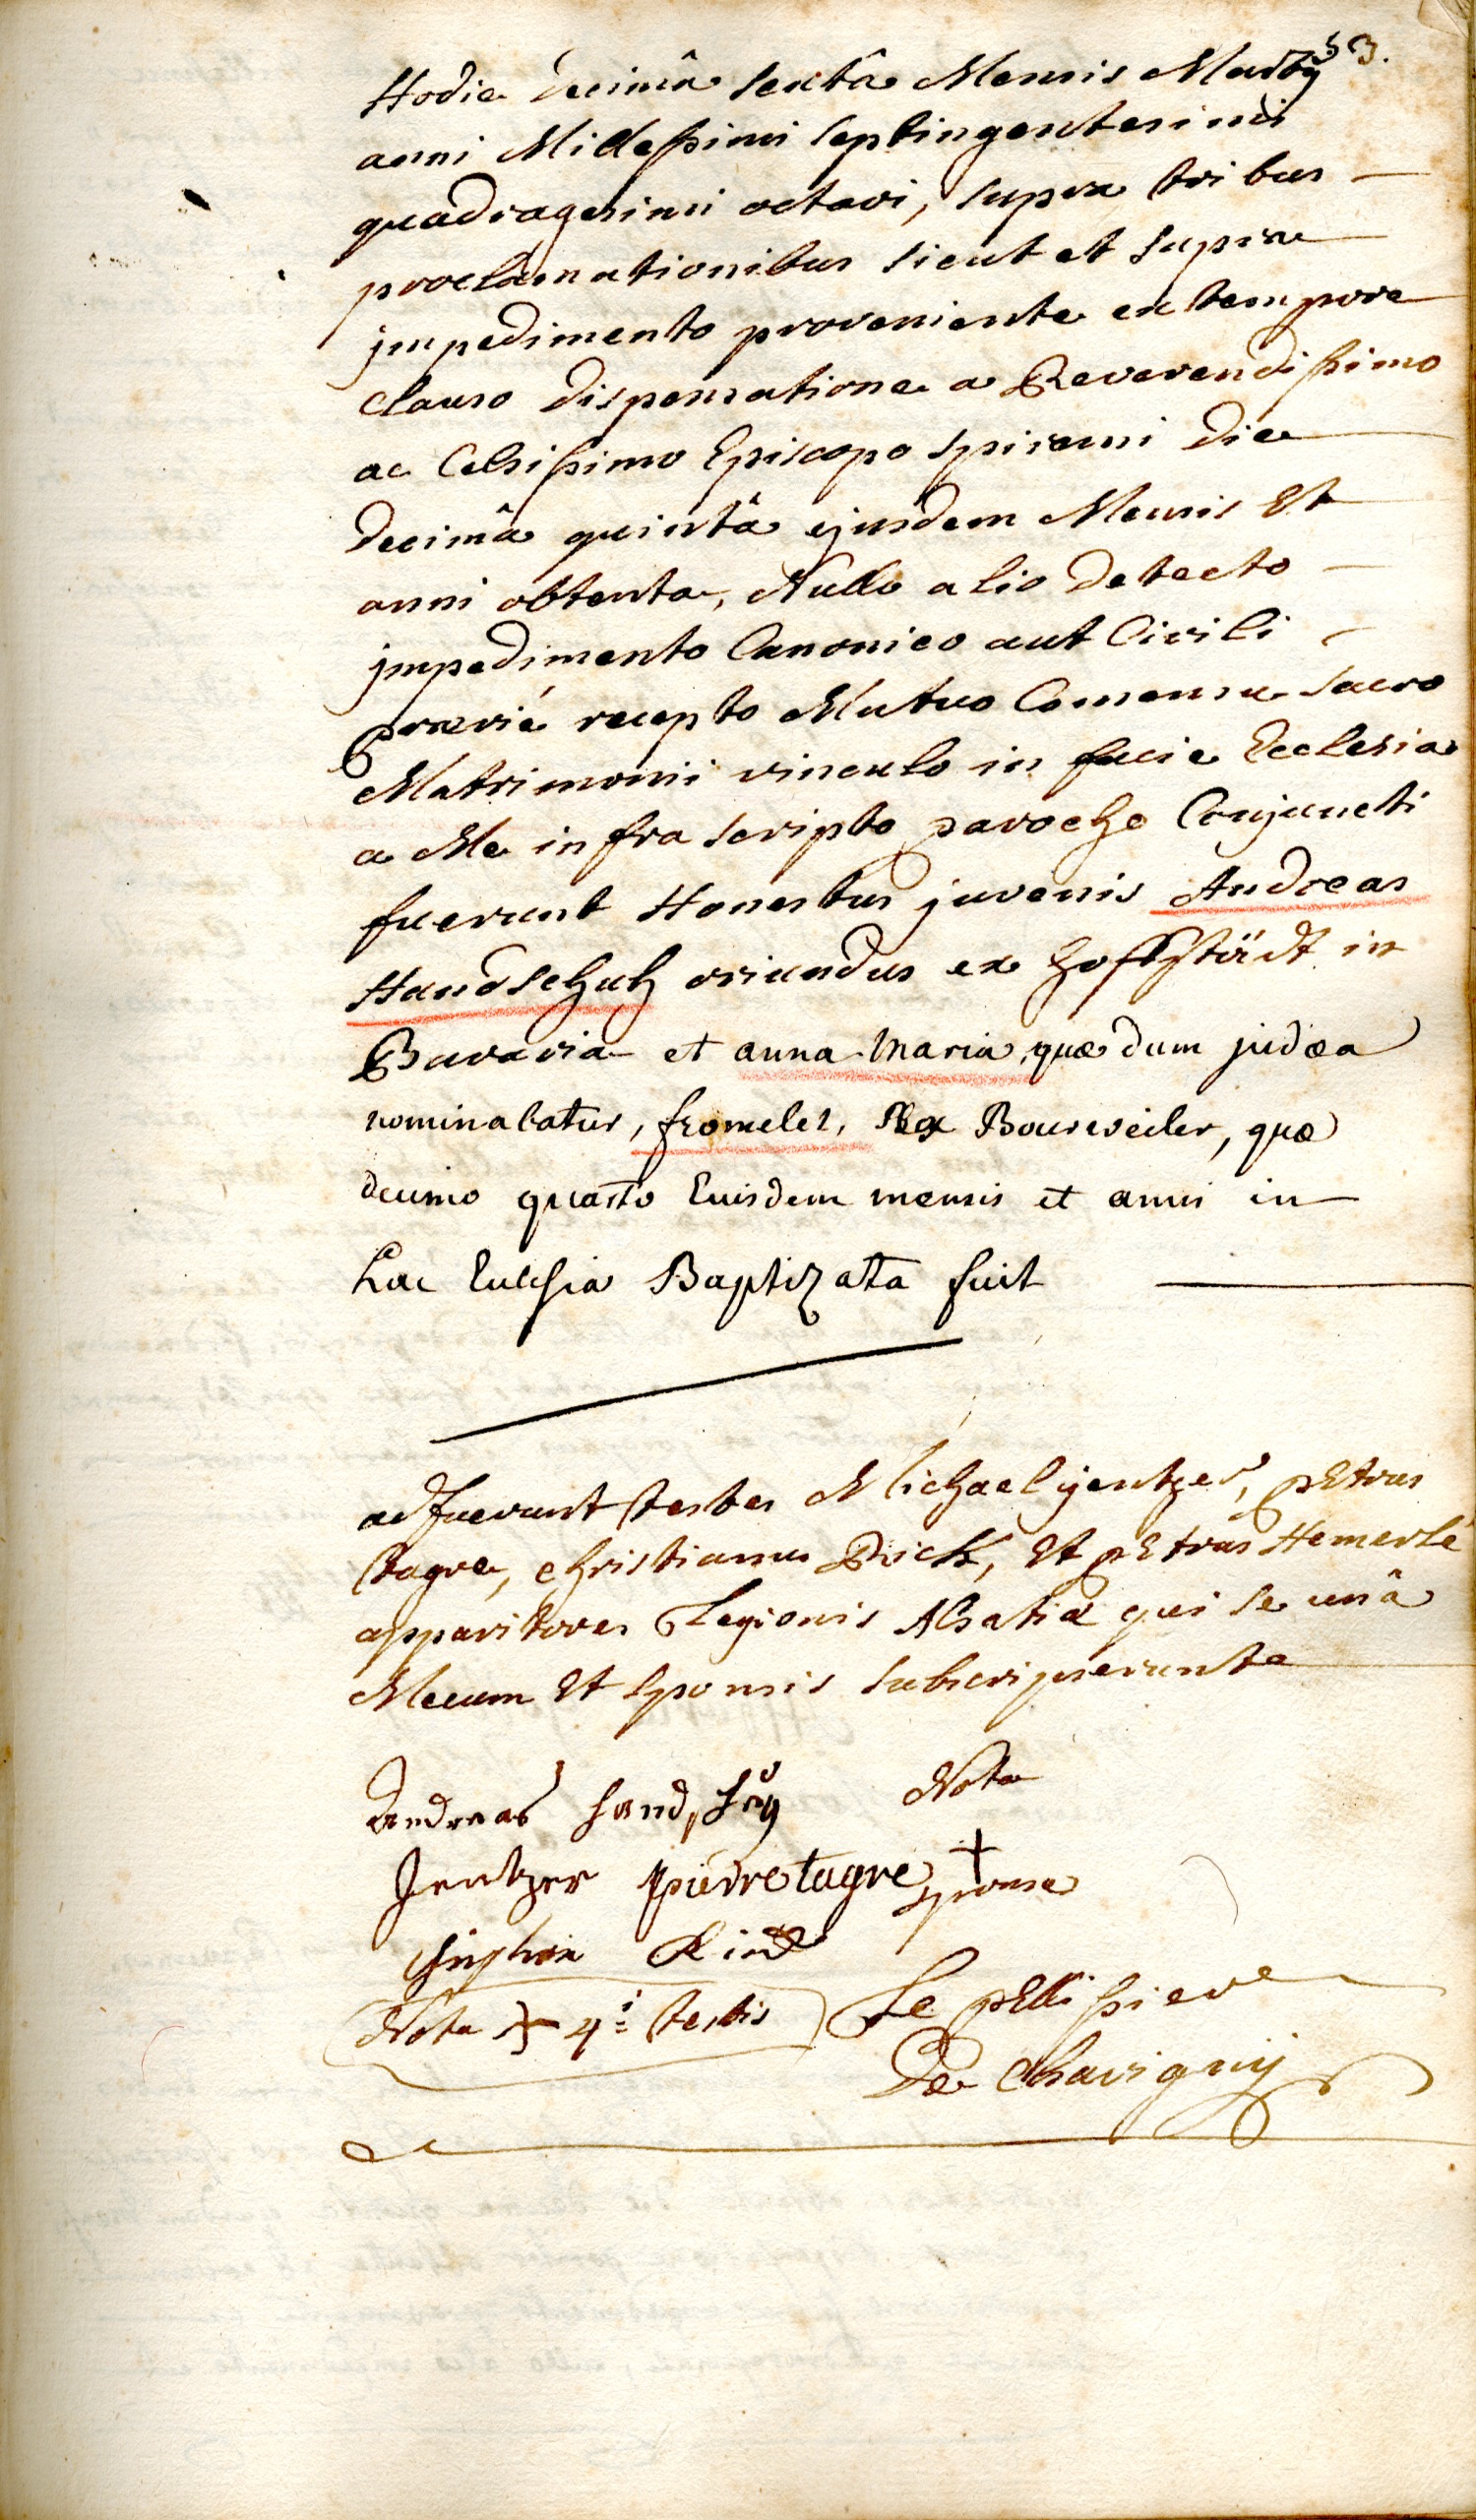 53.
Hodie decimâ sextâ Mensis Martij
anni Millessimi septingentesimi
quadragesimi octavi, supra tribus
proclamationibus sicut et supra
jmpedimento proveniente ex tempore
clauso dispensatione a Reverendissimo
ac Celsissimo Episcopo spirensi die
decimâ quintâ ejusdem Mensis Et
anni obtenta, Nullo alio detecto
jmpedimento Canonico aut Civili
prævié recepto Mutuo Consensu sacro
Matrimonii vinculo in facie Ecclesia
a Me infra scripto parocho Conjuncti
fuerunt Honestus juvenis Andreas
Handschuh oriundus ex hoffstädt in
Bavaria et anna Maria, quæ dum judæa
nominabatur, fromelet, ex Bourweiler, quæ
decimo quarto Euisdem mensis et anni in
hac Eclesia Baptizata fuit
adfuerunt testes Michael yentzer, pEtrus
tagre, christianus Rick, Et pEtrus Hemerlé
apparitores Legionis Alsatiæ qui se unâ
Mecum Et sponsis subscripserunt
Andreas Nota
Jentzer pierre tagre + sponsa
Nota + 4i testis Le pElissier
De Chavignij